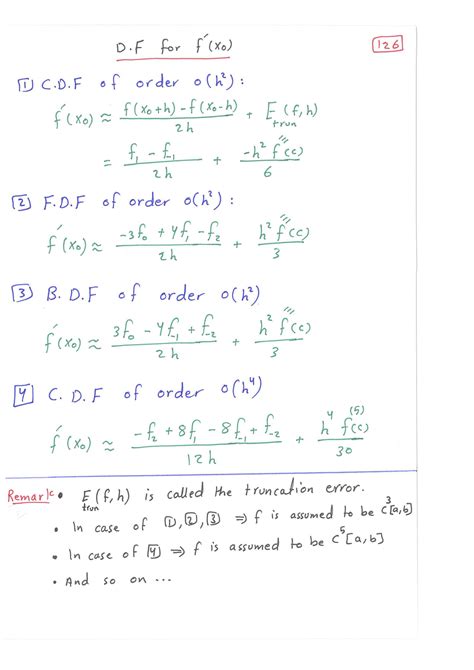 D.F for f'(x₀)
126
1 C.D.F of order O(h²):
f'(x₀) ≈ (f(x₀+h) - f(x₀-h)) / 2h + E_trun (f,h)
= (f₁ - f₋₁) / 2h + -h² f'''(c) / 6
2 F.D.F of order O(h²):
f'(x₀) ≈ (-3f₀ + 4f₁ - f₂) / 2h + h² f'''(c) / 3
3 B.D.F of order O(h²)
f'(x₀) ≈ (3f₀ - 4f₋₁ + f₋₂) / 2h + h² f'''(c) / 3
4 C.D.F of order O(h⁴)
f'(x₀) ≈ (-f₂ + 8f₁ - 8f₋₁ + f₋₂) / 12h + h⁴ f⁽⁵⁾(c) / 30
Remark • E_trun (f,h) is called the truncation error.
• In case of 1, 2, 3 ⇒ f is assumed to be C³[a,b]
• In case of 4 ⇒ f is assumed to be C⁵[a,b]
• And so on ...